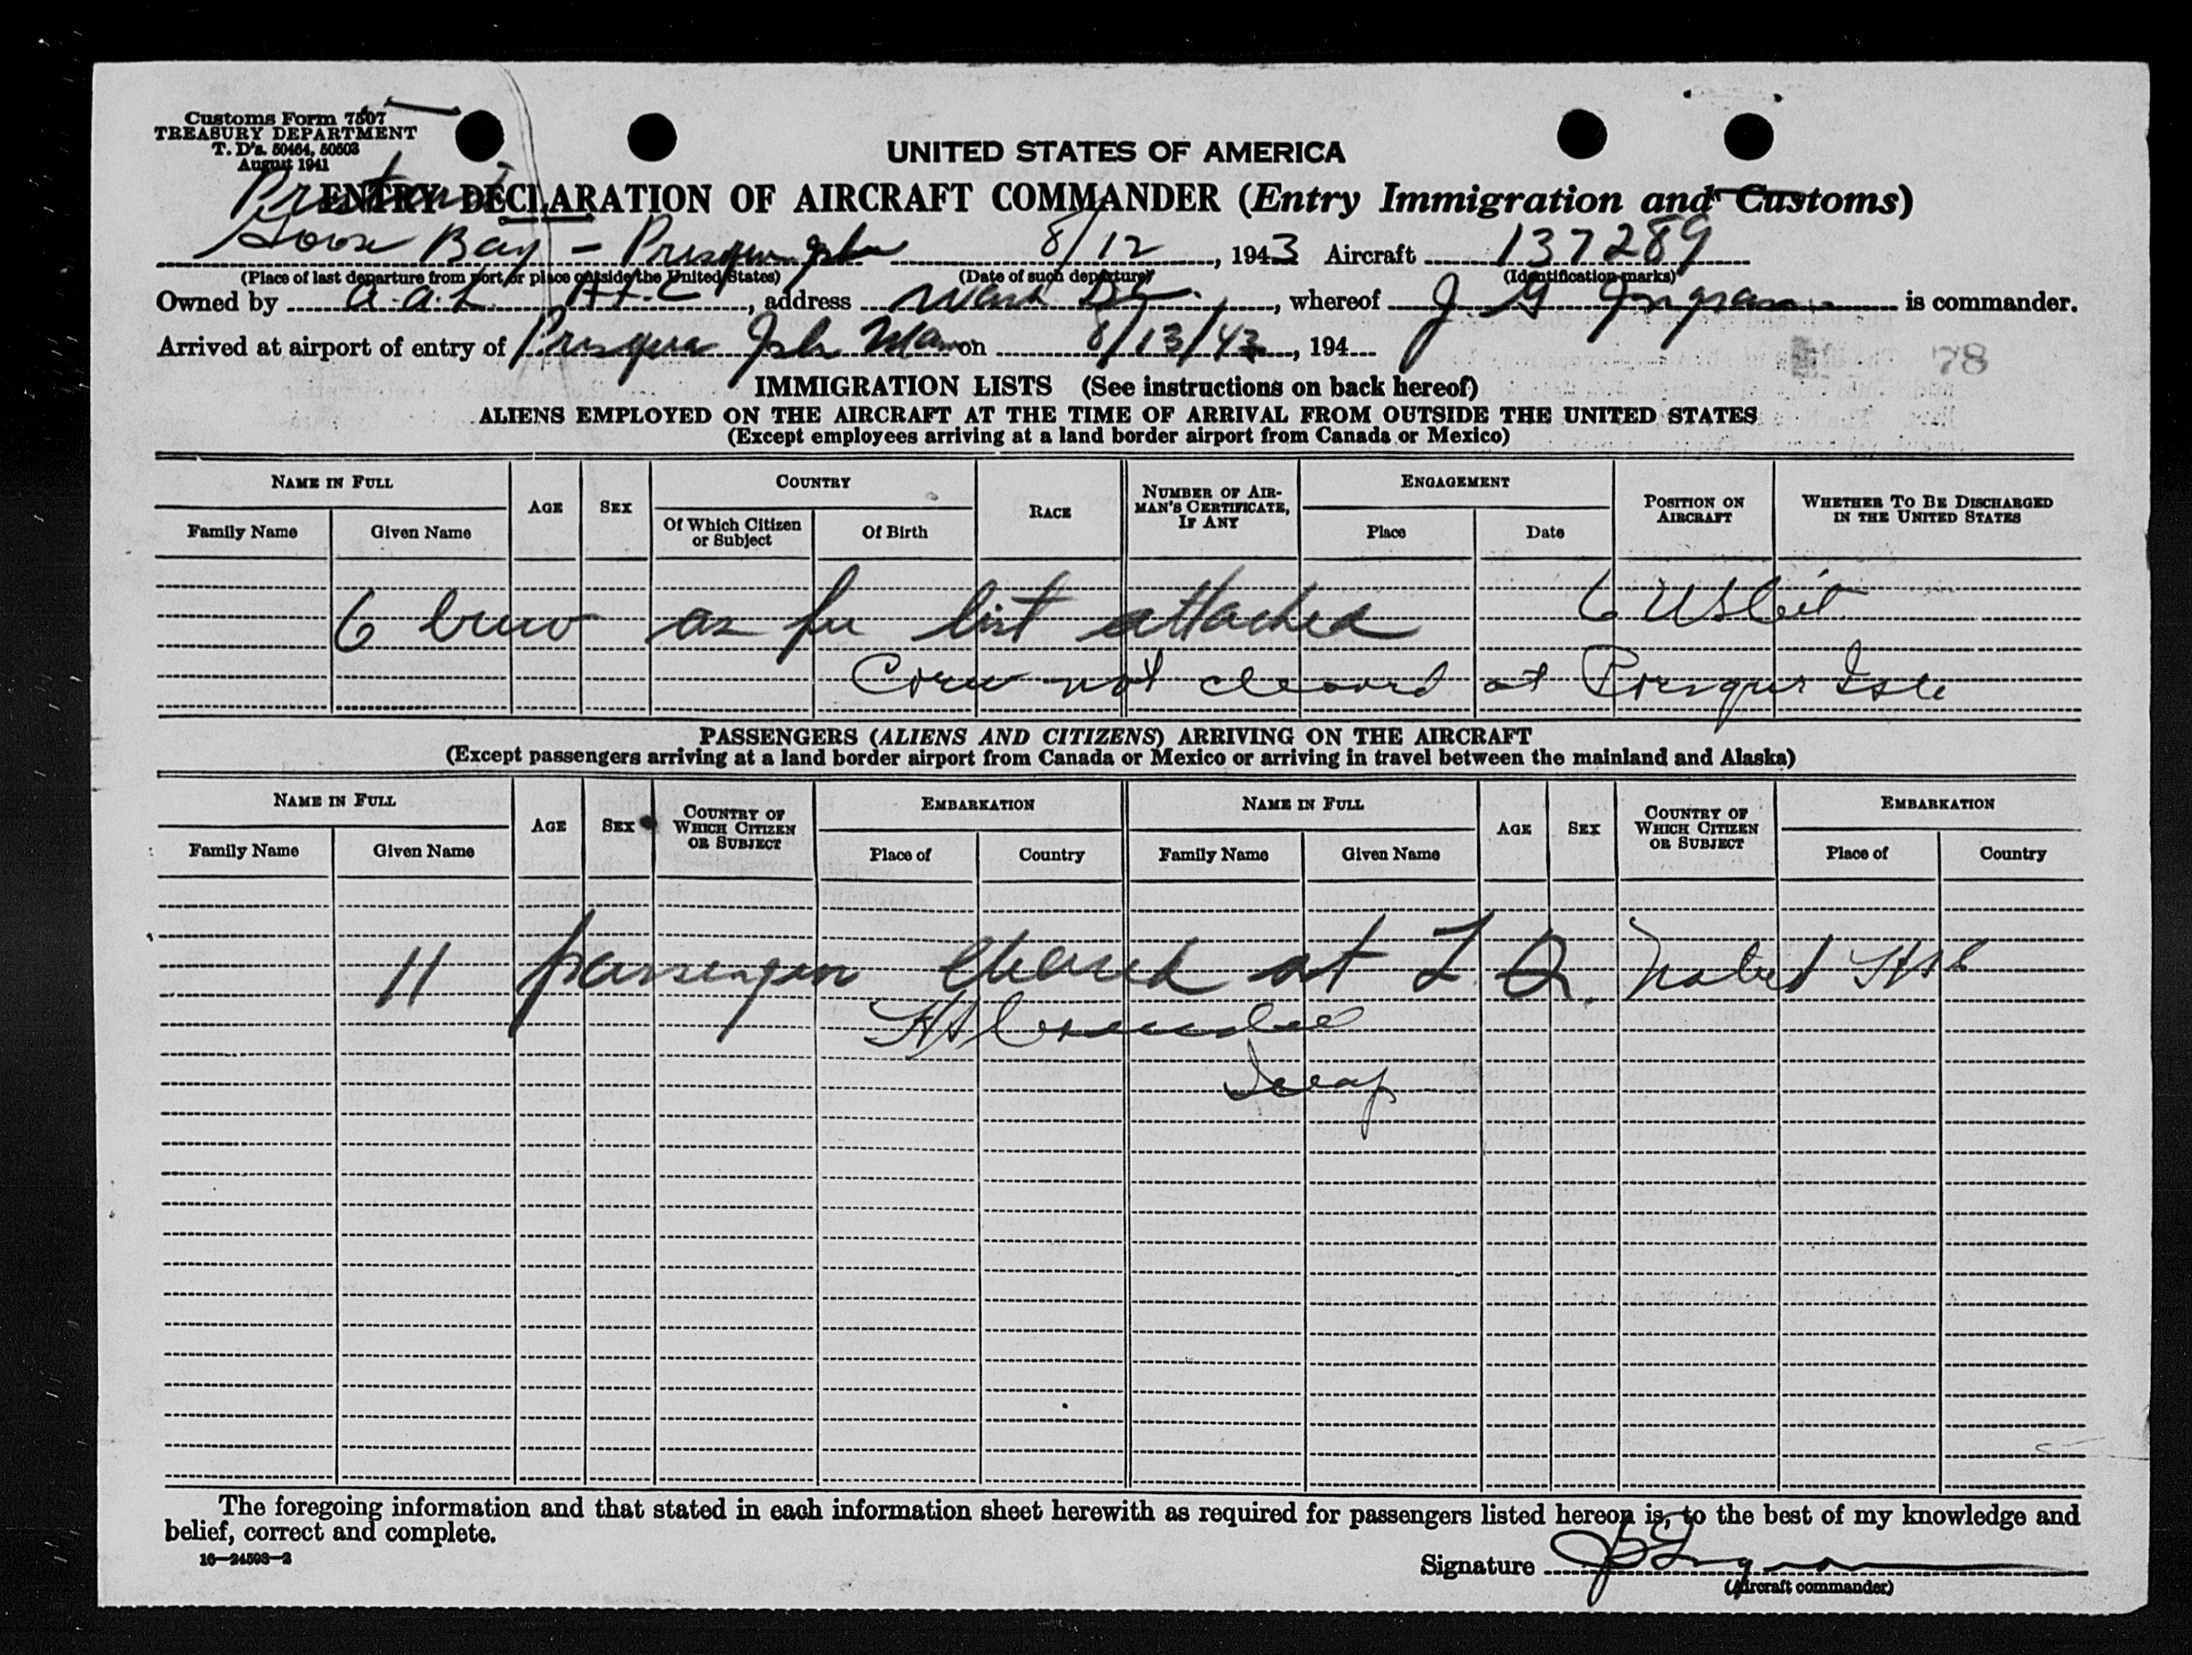 Customs Form 7507
TREASURY DEPARTMENT
T. D's. 50464, 50503
August 1941
UNITED STATES OF AMERICA
ENTRY DECLARATION OF AIRCRAFT COMMANDER (Entry Immigration and Customs)
Goose Bay - Presque Isle 8/12, 1943 Aircraft 137289
(Place of last departure from port or place outside the United States) (Date of such departure) (Identification marks)
Owned by A.A.L. A.T.C, address Wash, whereof J. G Ingram is commander.
Arrived at airport of entry of Presque Isle on 8/13/43, 194
78
IMMIGRATION LISTS (See instructions on back hereof)
ALIENS EMPLOYED ON THE AIRCRAFT AT THE TIME OF ARRIVAL FROM OUTSIDE THE UNITED STATES
(Except employees arriving at a land border airport from Canada or Mexico)
NAME IN FULL AGE SEX COUNTRY RACE NUMBER OF AIRMAN'S CERTIFICATE, IF ANY ENGAGEMENT POSITION ON AIRCRAFT WHETHER TO BE DISCHARGED IN THE UNITED STATES
Family Name Given Name Of Which Citizen or Subject Of Birth Place Date
6 crew as per list attached 6 US Cit
Crew not cleared at Presque Isle
PASSENGERS (ALIENS AND CITIZENS) ARRIVING ON THE AIRCRAFT
(Except passengers arriving at a land border airport from Canada or Mexico or arriving in travel between the mainland and Alaska)
NAME IN FULL AGE SEX COUNTRY OF WHICH CITIZEN OR SUBJECT EMBARKATION NAME IN FULL AGE SEX COUNTRY OF WHICH CITIZEN OR SUBJECT EMBARKATION
Family Name Given Name Place of Country Family Name Given Name Place of Country
11 passengers cleared at
The foregoing information and that stated in each information sheet herewith as required for passengers listed hereon is, to the best of my knowledge and
belief, correct and complete.
16—24508-2
Signature J G Ingram
(Aircraft commander)